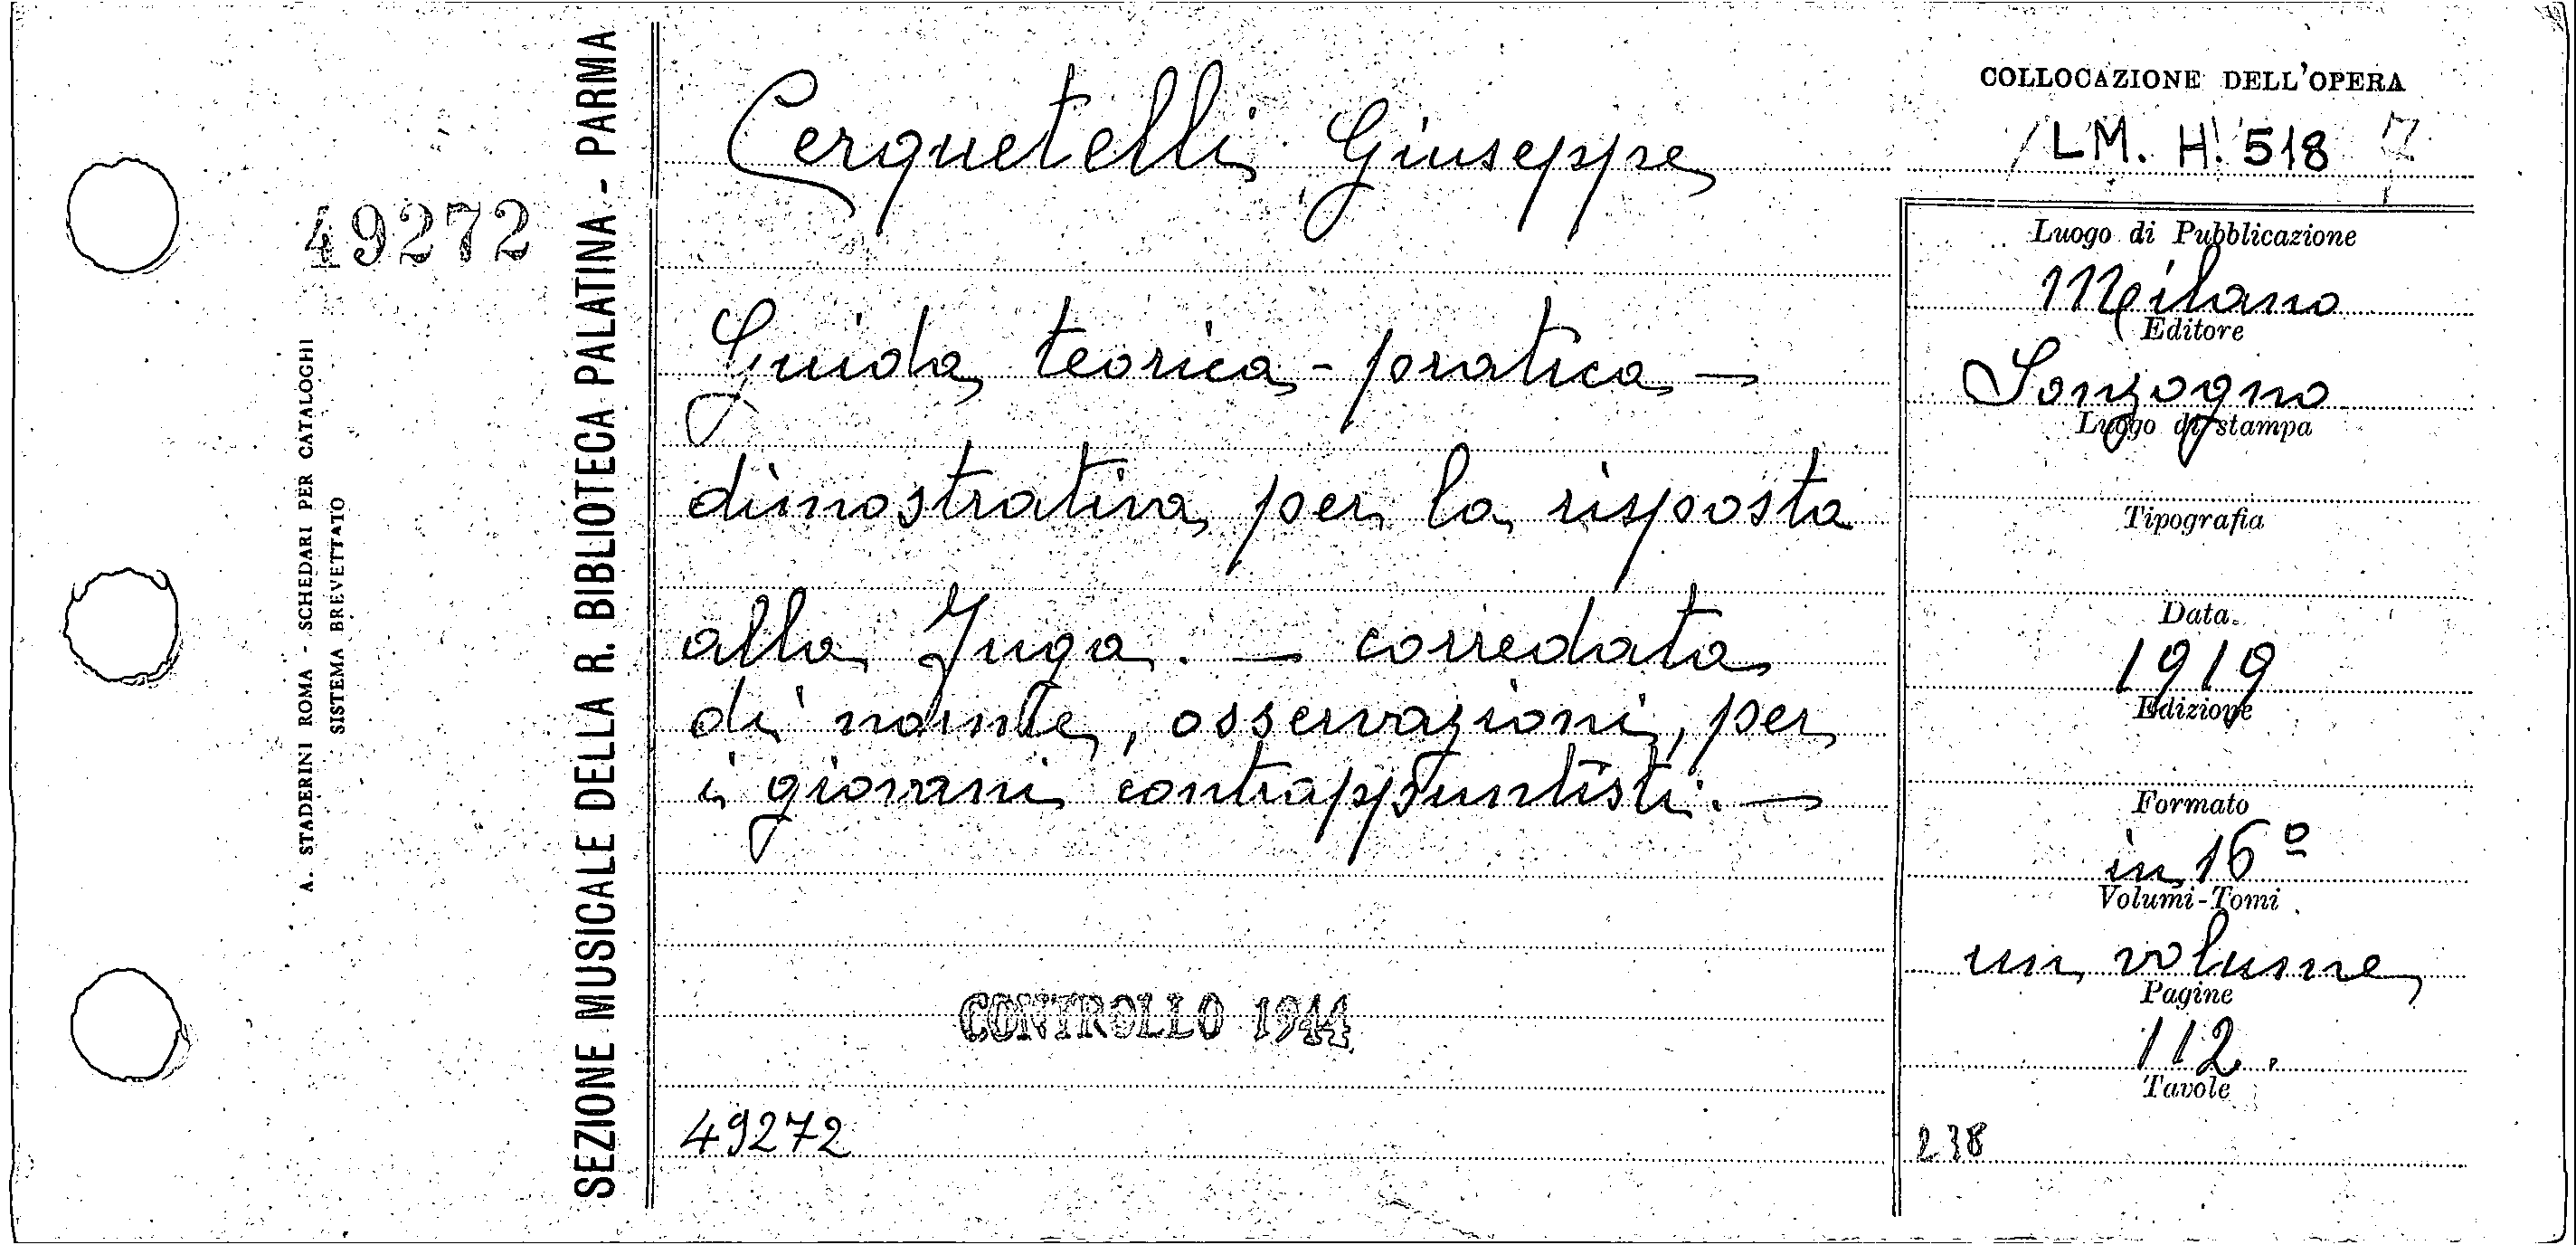 49272
A. STADERINI ROMA - SCHEDARI PER CATALOGHI
SISTEMA BREVETTATO
SEZIONE MUSICALE DELLA R. BIBLIOTECA PALATINA - PARMA
Cerquetelli Giuseppe
Guida teorica - pratica —
dimostrativa per la risposta
alla Fuga. — corredata
di norme, osservazioni, per
i giovani contrappuntisti. —
CONTROLLO 1944
49272
COLLOCAZIONE DELL'OPERA
LM. H. 518
Luogo di Pubblicazione
Milano
Editore
Sonzogno
Luogo di stampa
Tipografia
Data
1919
Edizione
Formato
in 16º
Volumi-Tomi
un volume
Pagine
112.
Tavole
238